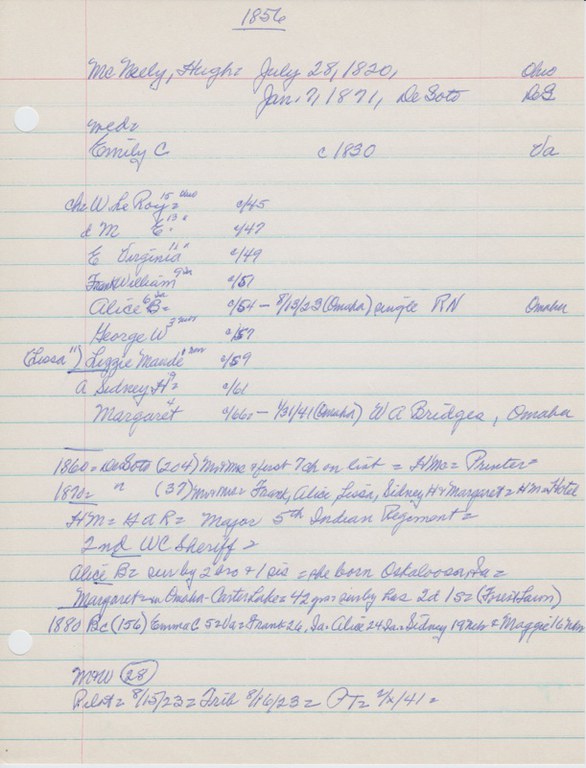 1856
McNeely, Hugh= July 28, 1820, Ohio
Jan. 7, 1871, DeSoto
med=
Emily C c 1830 Va
che W LeRoy= 15 c/45
d M E= 13 c/47
E Virginia 11 c/49
Frank William 9 Ia c/51
Alice B= 6 Ia c/54 - 8/13/23 (Omaha) single RN Omaha
George W 3 c/57
(Lissa 11) Lizzie Maude c/59
A Sidney H= 9 c/61
Margaret 4 c/66 - 1/31/41 (Omaha) W A Bridges, Omaha
1860= DeSoto (204) Mr & Mrs & first 7 ch on list = HMc= Printer=
1870= " (37) Mr & Mrs= Frank, Alice, Lissa, Sidney H & Margaret= HM= Hotel
HM= GAR= Major 5th Indian Regiment=
2nd WC Sheriff=
Alice B= sur by 2 bro & 1 sis = she born Oskaloosa, Ia=
Margaret= in Omaha-Carter Lake= 42 yrs= sur by hus 2d 1s= (Forest Lawn)
1880 Bc (156) Emma C 52 Va= Frank 26, Ia= Alice 24 Ia= Sidney 19 Neb & Maggie 16 Neb
M&W (28)
Pilot= 8/15/23= Trib 8/16/23= PT= 2/x/41=